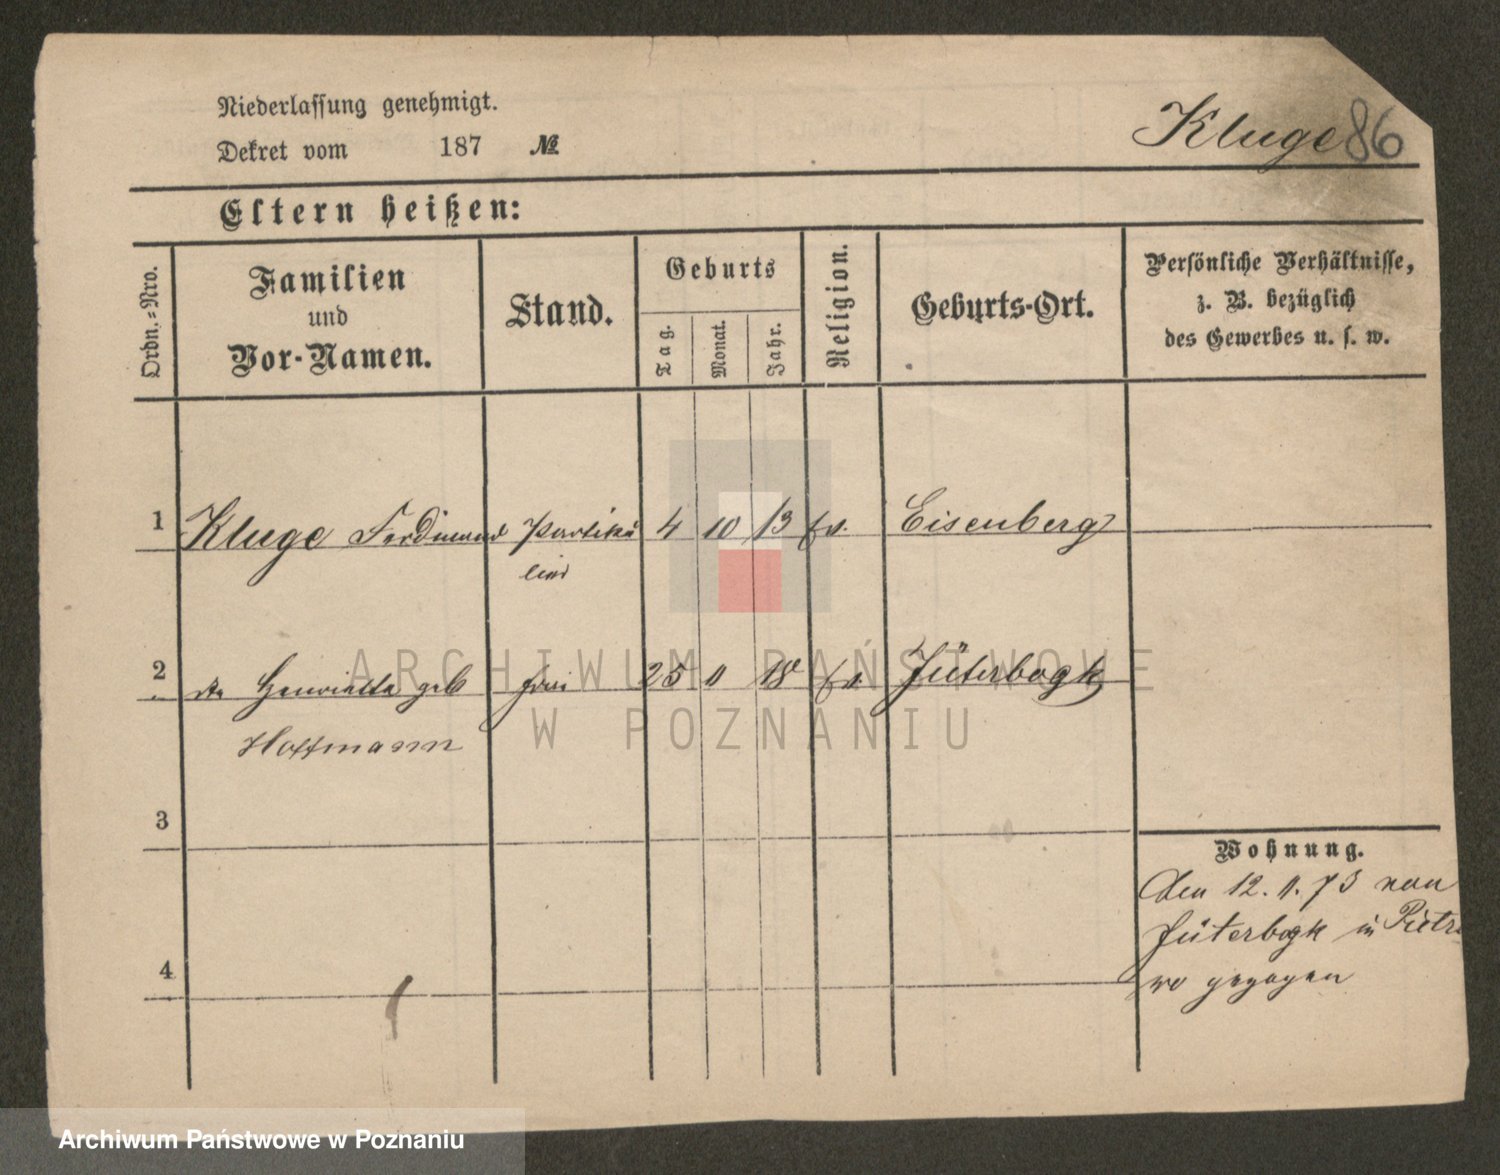 Niederlassung genehmigt.
Dekret vom 187 №
Kluge 86
Eltern heißen:
Ordn.=Nro.
Familien
und
Vor-Namen.
Stand.
Geburts
Tag.
Monat.
Jahr.
Religion.
Geburts-Ort.
Persönliche Verhältnisse,
z. B. bezüglich
des Gewerbes u. s. w.
1 Kluge Ferdinand Partiku 4 10 13 ev. Eisenberg
lier
2 Henriette geb Frau 25 11 18 ev. Jüterbogk
Hoffmann
3
4
Wohnung.
Den 12. 11. 73 von
Jüterbogk in Pietro
wo gezogen
ARCHIWUM PAŃSTWOWE
W POZNANIU
Archiwum Państwowe w Poznaniu